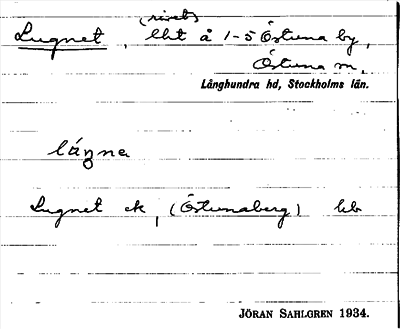 (rivet)
Lugnet, lht å 1-5 Östuna by,
Östuna sn,
Långhundra hd, Stockholms län.
láŋna
Lugnet ek, (Östunaberg) hb
JÖRAN SAHLGREN 1934.